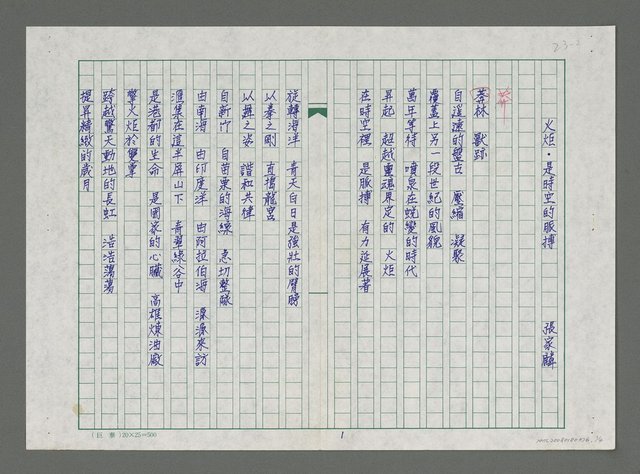 火炬‧是時空的脈搏
張家麟
莽林 獸跡
莽
自遙遠的盤古 壓縮 凝聚
覆蓋上另一段世紀的風貌
萬年等待 噴泉在蛻變的時代
昇起 超越靈魂界定的 火炬
在時空裡 是脈搏 有力延展著
旋轉海洋 青天白日是強壯的臂膀
以秦之剛 直搗龍宮
以舞之姿 諧和共律
自新竹 自苗栗的海線 急切整隊
由南海 由印度洋 由阿拉伯海 濕濕來訪
滙集在這半屏山下 青翠綠谷中
是港都的生命 是國家的心臟 高雄煉油廠
擎火炬於雙掌
跨越驚天動地的長虹 浩浩蕩蕩
提昇精緻的歲月
1
(巨寨)20×25=500